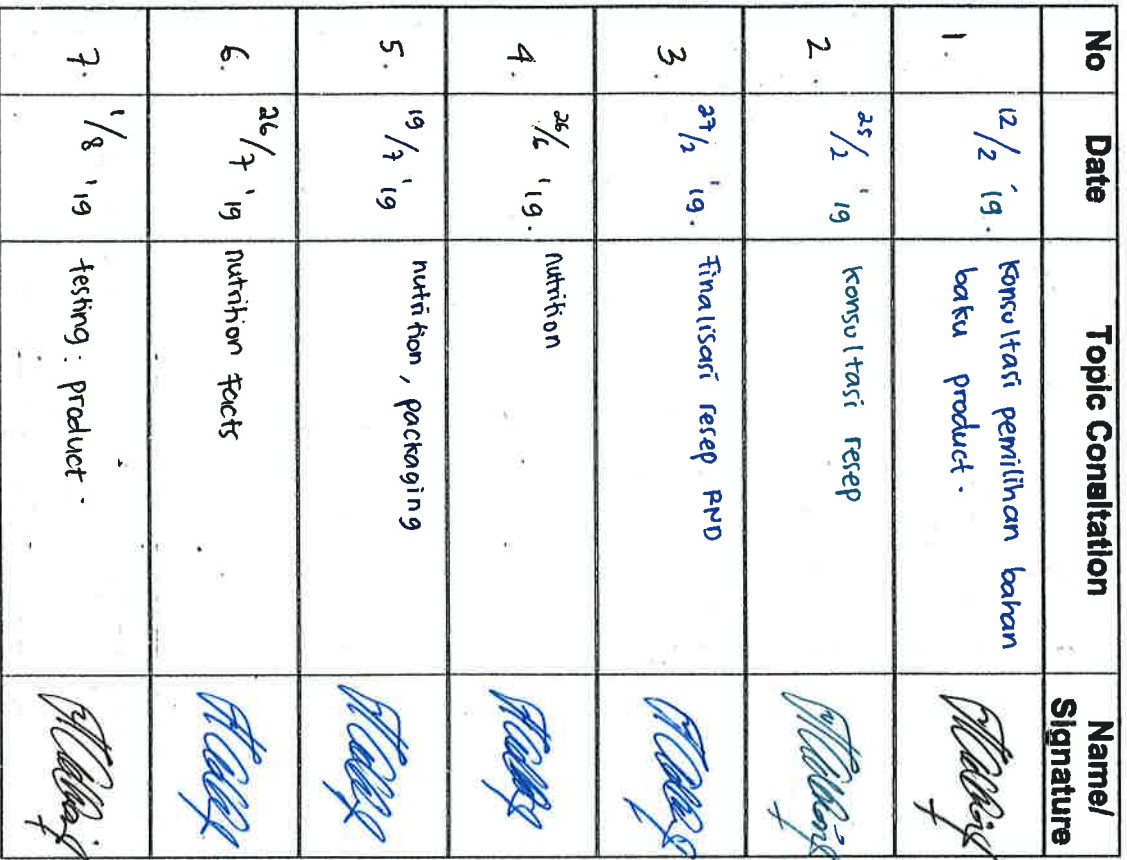 No Date Topic Consltation Name/
Signature
1. 12/2 '19. Konsultasi pemilihan bahan
baku product.
2. 25/2 '19 Konsultasi resep
3. 27/2 '19. Finalisasi resep RND
4. 26/6 '19. nutrition
5. 19/7 '19 nutrition, packaging
6. 26/7 '19 nutrition facts
7. 1/8 '19 testing: product.